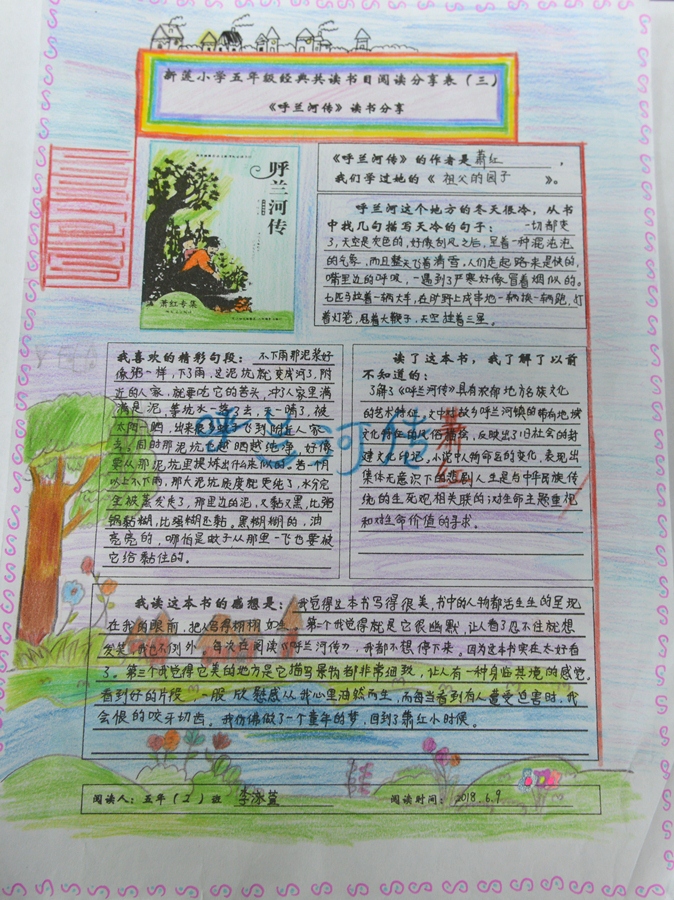 新莲小学五年级经典共读书目阅读分享表（三）
《呼兰河传》读书分享
呼兰河传
萧红专集
《呼兰河传》的作者是 萧红 ，
我们学过她的《 祖父的园子 》。
呼兰河这个地方的冬天很冷，从书
中找几句描写天冷的句子： 一切都变
了,天空是灰色的,好像刮风之后,呈着一种混沌沌
的气象,而且整天飞着清雪,人们走起路来是快的,
嘴里边的呼吸,一遇到了严寒好像冒着烟似的。
七匹马拉着一辆大车,在旷野上成串地一辆挨一辆跑,打
着灯笼,甩着大鞭子,天空挂着三星。
我喜欢的精彩句段： 不下雨那泥浆好
像粥一样,下了雨,这泥坑就变成河了,附
近的人家,就要吃它的苦头,冲了人家里满
满是泥,等坑水一落了去,天一晴了,被
太阳一晒,出来很多蚊子飞到附近人家
去。同时那泥坑也越晒越纯净,好像
要从那泥坑里提炼出什么来似的。若一个月
以上不下雨,那大泥坑质度就更纯了,水分完
全被蒸发走了,那里边的泥,又黏又黑,比粥
锅黏糊,比浆糊还黏。黑糊糊的,油
亮亮的,哪怕是蚊子从那里一飞也要被
它给黏住的。
读了这本书，我了解了以前
不知道的：
了解了《呼兰河传》具有浓郁地方名族文化
的艺术特征,文中对故乡呼兰河镇的带有地域
文化特征的风俗描绘,反映出了旧社会的封
建文化印记。小说中人物命运的变化,表现出
集体无意识下的悲剧人生是与中华民族传
统的生死观相关联的:对生命主题重视
和对生命价值的寻求。
呼兰河传
我读这本书的感想是： 我觉得这本书写得很美,书中的人物都活生生的呈现
在我的眼前,把人写得栩栩如生。第二个我觉得就是它很幽默,让人看了忍不住就想
发笑,我也不例外,每次在阅读《呼兰河传》,我都不想停下来。因为这本书实在太好看
了。第三个我觉得它美的地方是它描写景物都非常细致,让人有一种身临其境的感觉。
看到好的片段,一股欣慰感从我心里油然而生,而每当看到有人遭受迫害时,我
会恨的咬牙切齿。我仿佛做了一个童年的梦,回到了萧红小时候。
阅读人：五年（2）班 李泳萱 阅读时间： 2018.6.9